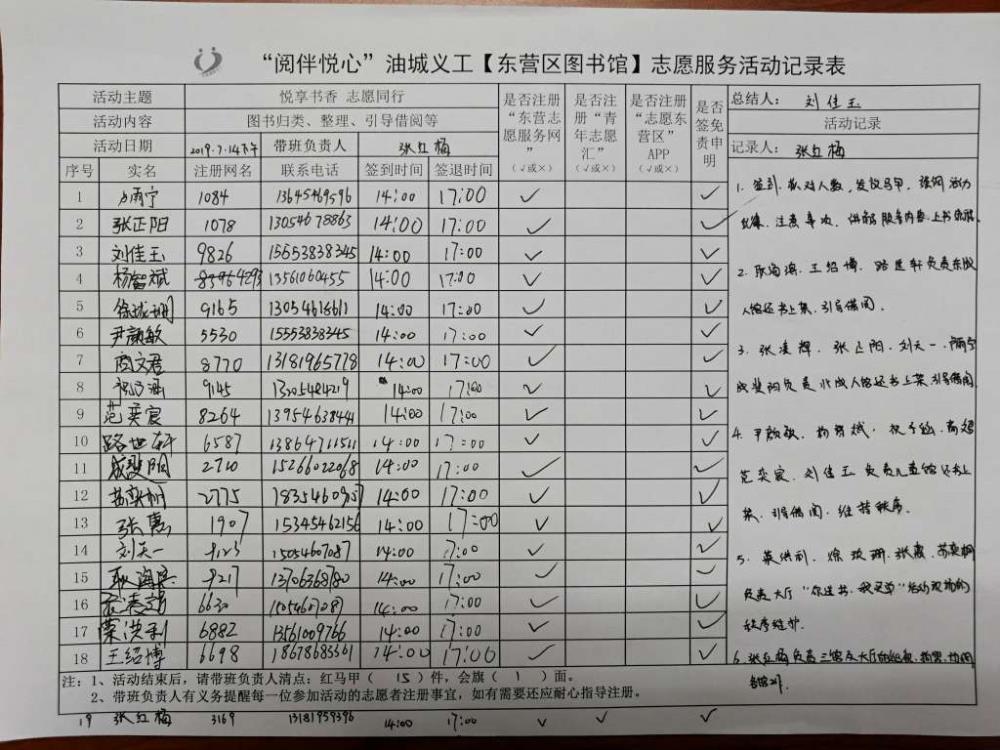 “阅伴悦心”油城义工【东营区图书馆】志愿服务活动记录表
活动主题 悦享书香 志愿同行 是否注册“东营志愿服务网”(√或×) 是否注册“青年志愿汇”(√或×) 是否注册“志愿东营区”APP(√或×) 是否签免责申明 总结人: 刘佳玉
活动内容 图书归类、整理、引导借阅等 活动记录
活动日期 2019.7.14下午 带班负责人 张红梅 记录人: 张红梅
序号 实名 注册网名 联系电话 签到时间 签退时间
1 1084 13645469596 14:00 17:00 √ √
2 张正阳 1078 13054678863 14:00 17:00 √ √
3 刘佳玉 9826 15553838345 14:00 17:00 √ √
4 杨智斌 13561060455 14:00 17:00 √ √
5 徐玻珊 9165 13054616611 14:00 17:00 √ √
6 尹颜敏 5530 15553838345 14:00 17:00 √ √
7 商文君 8770 13181965778 14:00 17:00 √ √
8 9145 14:00 17:00 √ √
9 范奕宸 8264 13954638441 14:00 17:00 √ √
10 路世轩 6587 13864711511 14:00 17:00 √ √
11 2710 15266022068 14:00 17:00 √ √
12 苏奕桐 2775 14:00 17:00 √ √
13 张惠 1907 15345462156 14:00 17:00 √ √
14 刘天一 9123 15054607087 14:00 17:00 √ √
15 9217 13706368780 14:00 17:00 √ √
16 6630 14:00 17:00 √ √
17 荣洪利 6882 13561009766 14:00 17:00 √ √
18 王绍博 6698 18678683661 14:00 17:00 √ √
1. 签到、核对人数,发放马甲,强调活动
注意事项,
2. 王绍博、路世轩负责东成
人馆还书上架、引导借阅。
3. 张凌辉、张正阳、刘天一、
负责北成人馆还书上架引导借阅
4. 尹颜敏、杨智斌、
范奕宸、刘佳玉负责儿童馆还书上
架、引导借阅、维持秩序。
5. 荣洪利、徐玻珊、张惠、苏奕桐
负责大厅“你选书,我买单”活动现场的
秩序维护.
6. 张红梅负责三馆及大厅的
注:1、活动结束后,请带班负责人清点:红马甲( 15 )件,会旗( 1 )面。
2、带班负责人有义务提醒每一位参加活动的志愿者注册事宜,如有需要还应耐心指导注册。
19 张红梅 3169 13181959396 14:00 17:00 √ √ √